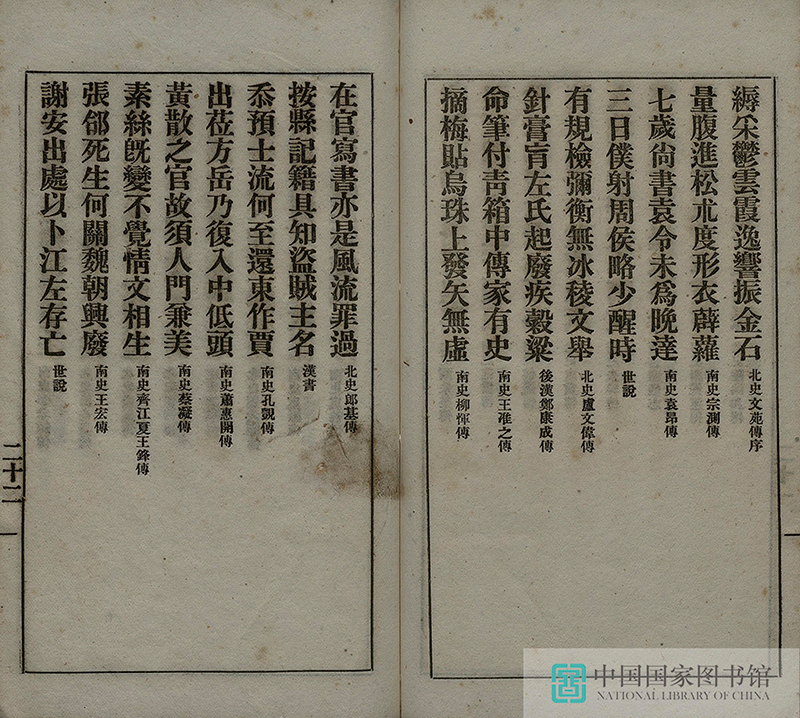 縟采鬱雲霞逸響振金石 北史文苑傳序
量腹進松朮度形衣薜蘿 南史宗測傳
七歲尙書袁令未爲晚達 南史袁昂傳
三日僕射周侯略少醒時 世說
有規檢彌衡無冰稜文舉 北史盧文偉傳
針膏肓左氏起廢疾穀梁 後漢鄭康成傳
命筆付靑箱中傳家有史 南史王准之傳
摘梅貼烏珠上發矢無虛 南史柳惲傳
在官寫書亦是風流罪過 北史郎基傳
按縣記籍具知盜賊主名 漢書
忝預士流何至還東作賈 南史孔覬傳
出莅方岳乃復入中低頭 南史蕭惠開傳
黃散之官故須人門兼美 南史蔡凝傳
素絲旣變不覺情文相生 南史齊江夏王鋒傳
張郃死生何關魏朝興廢 南史王宏傳
謝安出處以卜江左存亡 世說
二十二
中国国家图书馆
NATIONAL LIBRARY OF CHINA